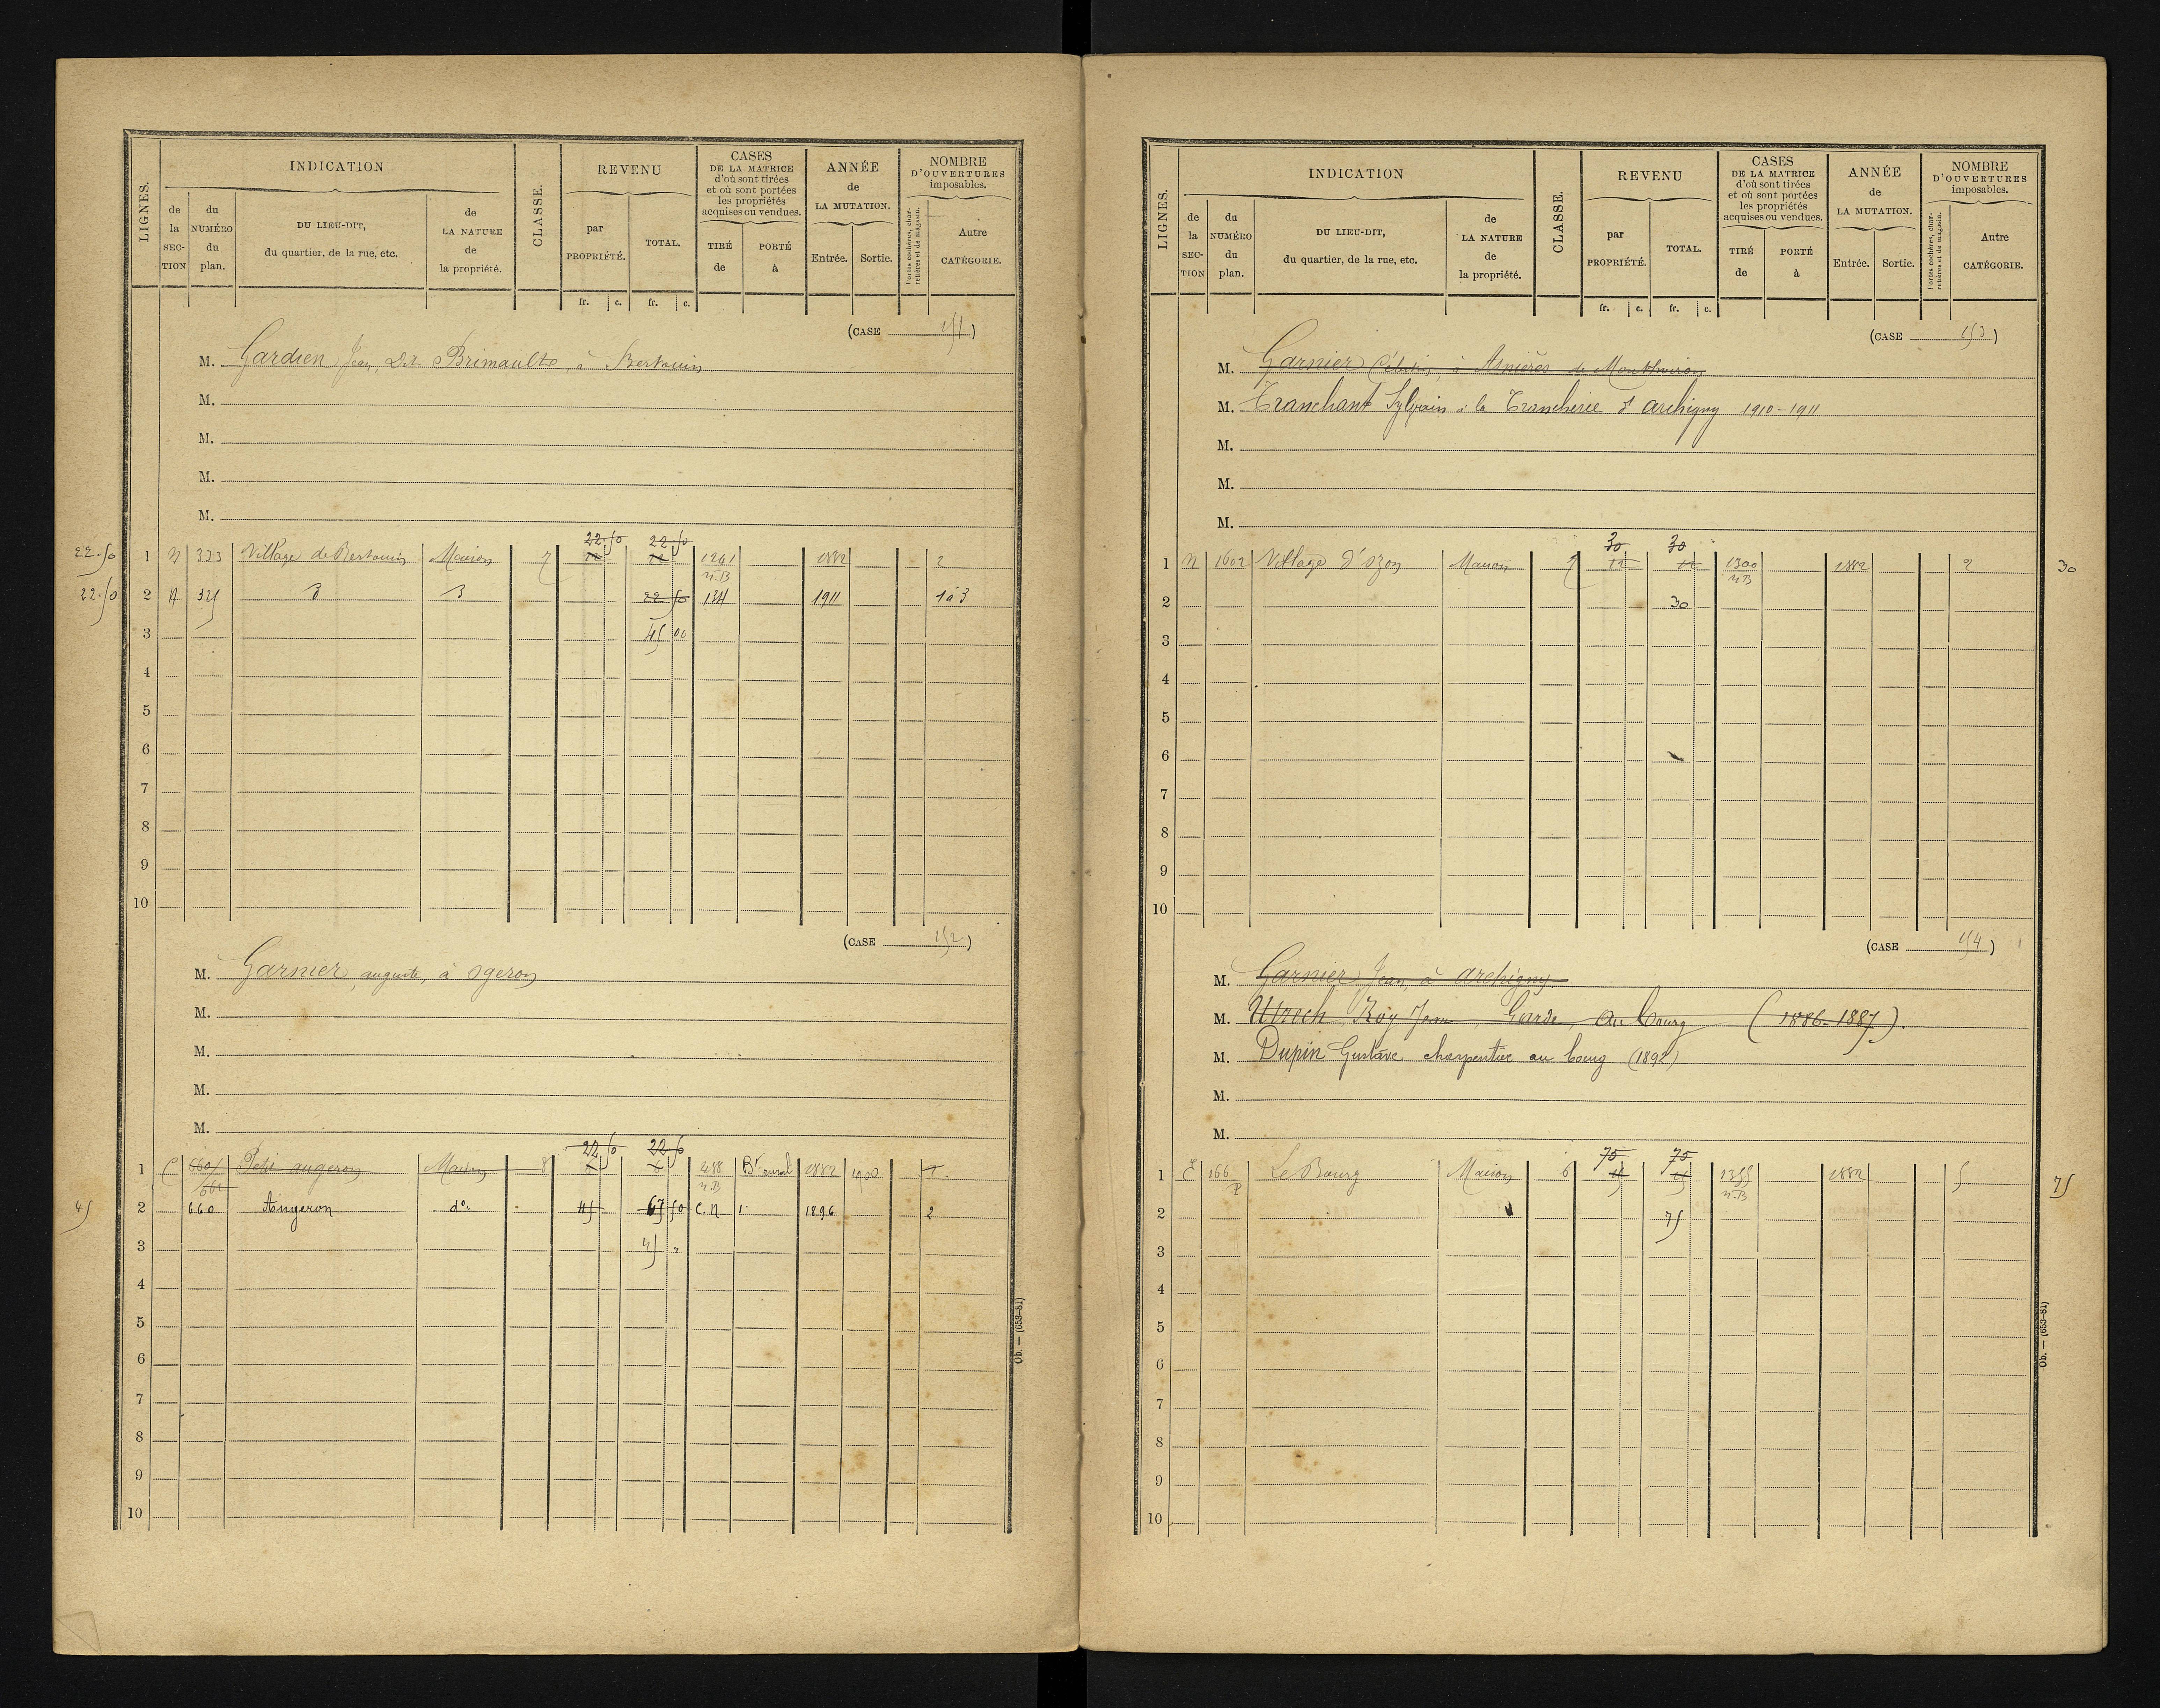 LIGNES.
INDICATION
CLASSE.
REVENU
CASES
DE LA MATRICE
d'où sont tirées
et où sont portées
les propriétés
acquises ou vendues.
ANNÉE
de
LA MUTATION.
NOMBRE
D'OUVERTURES
imposables.
de la SEC-TION
du NUMÉRO du plan.
DU LIEU-DIT,
du quartier, de la rue, etc.
de LA NATURE de la propriété.
par PROPRIÉTÉ.
TOTAL.
TIRÉ de
PORTÉ à
Entrée.
Sortie.
Portes cochères, charretières et de magasin.
Autre CATÉGORIE.
fr. c. fr. c.
(CASE 151)
M. Gardien Jean, dit Brimault, à Bertouin
M.
M.
M.
M.
22.50 22.50
22.50 1 N 333 Village de Bertouin Maison 7 12 12 1261 1882 2
n.B
22.50 2 N 325 d d 22 50 134 1911 1 à 3
3 45 00
4
5
6
7
8
9
10
(CASE 152)
M. Garnier, auguste, à Ogeron
M.
M.
M.
M.
22.50 22.50
1 C 660/ Petit augeron Maison 8 6 6 488 Bt rural 1882 1900 1
661 n.B
45 2 660 Augeron do 45 67 50 C.N 1 1896 2
3 45 "
4
5
6
7
8
9
10
Ob. — (653-81)
LIGNES.
INDICATION
CLASSE.
REVENU
CASES
DE LA MATRICE
d'où sont tirées
et où sont portées
les propriétés
acquises ou vendues.
ANNÉE
de
LA MUTATION.
NOMBRE
D'OUVERTURES
imposables.
de la SEC-TION
du NUMÉRO du plan.
DU LIEU-DIT,
du quartier, de la rue, etc.
de LA NATURE de la propriété.
par PROPRIÉTÉ.
TOTAL.
TIRÉ de
PORTÉ à
Entrée.
Sortie.
Portes cochères, charretières et de magasin.
Autre CATÉGORIE.
fr. c. fr. c.
(CASE 153)
M. Garnier Célestin, à Asnières de Monthoiron
M. Tranchant Sylvain à la Trancherie d'archigny 1910-1911
M.
M.
M.
30 30
1 N 1602 Village d'ozon Maison 7 12 12 1300 1882 2 30
n.B
2 30
3
4
5
6
7
8
9
10
(CASE 154)
M. Garnier Jean, à archigny
M. Roy Jean, Garde, au bourg (1886-1887).
M. Dupin Gustave charpentier au bourg (1892)
M.
M.
75 75
1 E 166 Le Bourg Maison 6 45 45 1355 1882 5 75
P n.B
2 75
3
4
5
6
7
8
9
10
Ob. — (653-81)